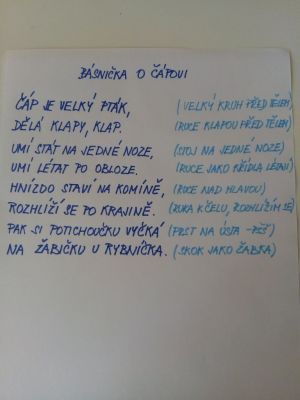 BÁSNIČKA O ČÁPOVI
ČÁP JE VELKÝ PTÁK, (VELKÝ KRUH PŘED TĚLEM)
DĚLÁ KLAPY, KLAP. (RUCE KLAPOU PŘED TĚLEM)
UMÍ STÁT NA JEDNÉ NOZE, (STOJ NA JEDNÉ NOZE)
UMÍ LÉTAT PO OBLOZE. (RUCE JAKO KŘÍDLA LÉTÁNÍ)
HNÍZDO STAVÍ NA KOMÍNĚ, (RUCE NAD HLAVOU)
ROZHLÍŽÍ SE PO KRAJINĚ. (RUKA K ČELU, ROZHLÍŽÍM SE)
PAK SI POTICHOUČKU VYČKÁ (PRST NA ÚSTA - PŠŠ)
NA ŽABIČKU U RYBNÍČKA. (SKOK JAKO ŽABKA)